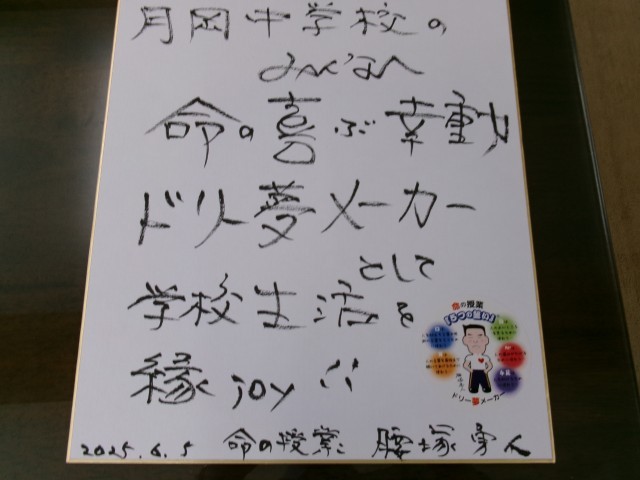 月岡中学校の
みんなへ
命の喜ぶ幸動
ドリー夢メーカー
として
学校生活を
縁joy!!
命の授業
「5つの誓い」
ドリー夢メーカー
2025.6.5 命の授業 腰塚勇人